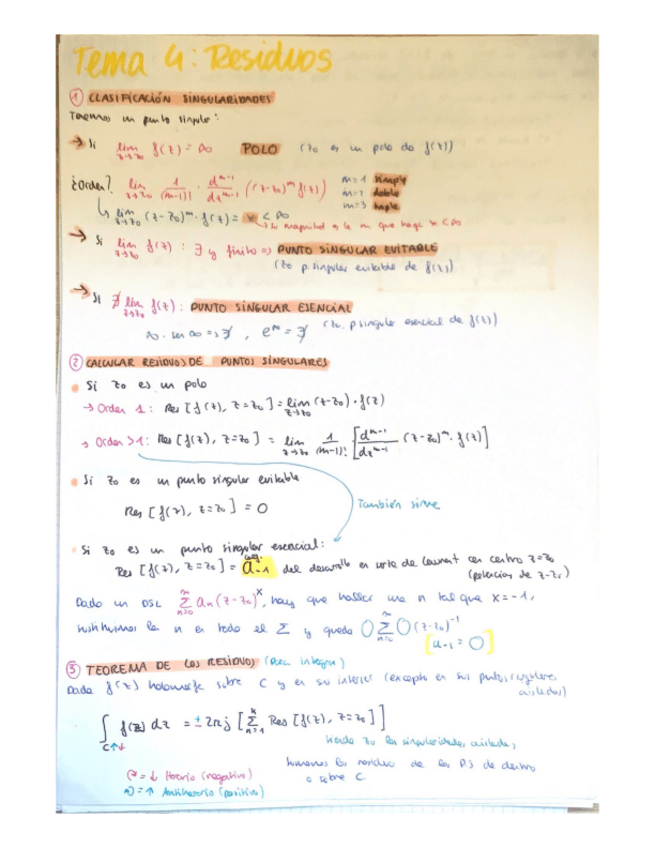 Tema 4: Residuos
① CLASIFICACIÓN SINGULARIDADES
Tenemos un punto singular:
→ Si lim z→z₀ f(z) = ∞ POLO (z₀ es un polo de f(z))
¿Orden? lim z→z₀ 1/(m-1)! · d^(m-1)/dz^(m-1) ((z-z₀)^m f(z)) m=1 simple
m=2 doble
m=3 triple
↳ lim z→z₀ (z-z₀)^m · f(z) = * < ∞
→ Si lim z→z₀ f(z) : ∃ y finito => PUNTO SINGULAR EVITABLE
(z₀ p. singular evitable de f(z))
→ Si ∄ lim z→z₀ f(z) : PUNTO SINGULAR ESENCIAL
∞ · sen ∞ => ∄, e^∞ = ∄ (z₀ p singular esencial de f(z))
② CALCULAR RESIDUOS DE PUNTOS SINGULARES
• Si z₀ es un polo
→ Orden 1: Res [f(z), z=z₀] = lim z→z₀ (z-z₀) · f(z)
→ Orden >1: Res [f(z), z=z₀] = lim z→z₀ 1/(m-1)! [d^(m-1)/dz^(m-1) (z-z₀)^m · f(z)]
• Si z₀ es un punto singular evitable
Res [f(z), z=z₀] = 0
También sirve
• Si z₀ es un punto singular esencial:
Res [f(z), z=z₀] = a₋₁ del desarrollo en serie de Laurent con centro z=z₀
(potencias de z-z₀)
Dado un DSL Σ n=0 ∞ aₙ(z-z₀)^x, hay que hallar una n tal que x=-1,
sustituimos la n en todo el Σ y queda O Σ n=0 ∞ O (z-z₀)^-1
[a₋₁ = O]
③ TEOREMA DE LOS RESIDUOS (Para integrar)
Dada f(z) holomorfa sobre C y en su interior (excepto en sus puntos singulares
aislados)
∫ C↑↓ f(z) dz = ± 2πj [Σ n=1 Res [f(z), z=z₀]]
siendo z₀ las singularidades aisladas,
tomamos los residuos de los PS de dentro
o sobre C
= ↓ Horario (negativo)
= ↑ Antihorario (positivo)